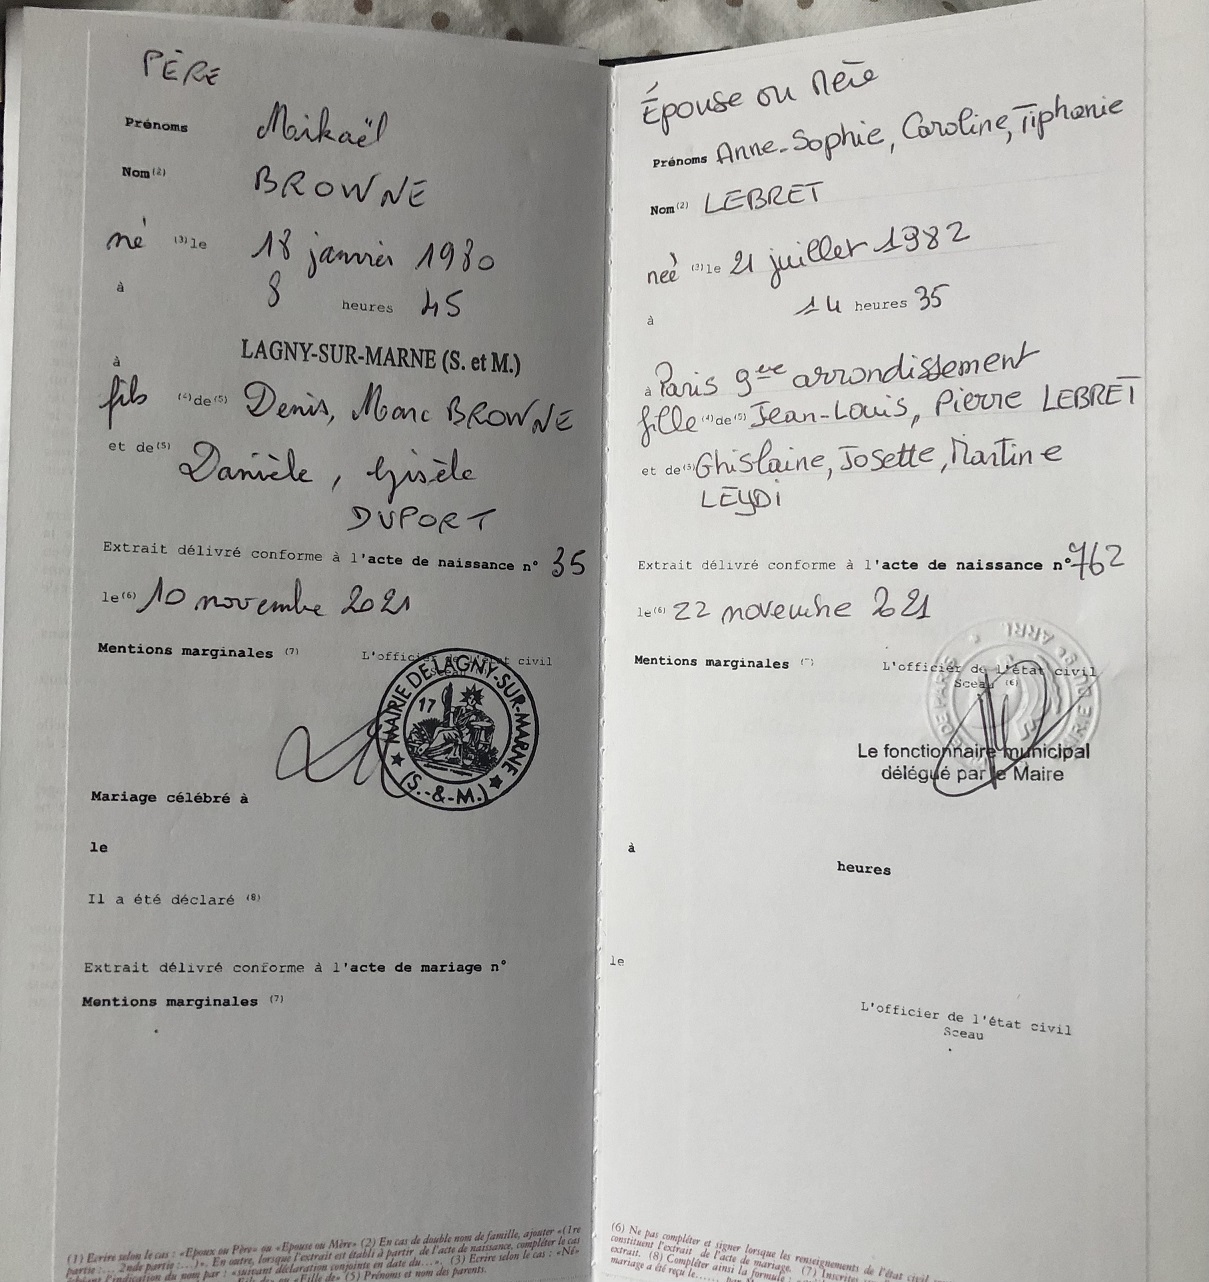 PÈRE
Prénoms Mikaël
Nom (2) BROWNE
né (3) le 18 janvier 1980
à 8 heures 45
à LAGNY-SUR-MARNE (S. et M.)
fils (4) de (5) Denis, Marc BROWNE
et de (5) Danièle, Gisèle
DUPORT
Extrait délivré conforme à l'acte de naissance n° 35
le (6) 10 novembre 2021
Mentions marginales (7) L'officier de l'état civil
MAIRIE DE LAGNY-SUR-MARNE
17
(S.-&-M.)
Mariage célébré à
le
Il a été déclaré (8)
Extrait délivré conforme à l'acte de mariage n°
Mentions marginales (7)
(1) Ecrire selon le cas : «Epoux ou Père» ou «Epouse ou Mère» (2) En cas de double nom de famille, ajouter «(1re
partie :... 2nde partie :...)». En outre, lorsque l'extrait est établi à partir de l'acte de naissance, compléter le cas
échéant l'indication du nom par : «suivant déclaration conjointe en date du...». (3) Ecrire selon le cas : «Né»
ou «Fille de» (5) Prénoms et nom des parents.
Épouse ou Mère
Prénoms Anne-Sophie, Caroline, Tiphanie
Nom (2) LEBRET
née (3) le 21 juillet 1982
à 14 heures 35
à Paris 9ème arrondissement
fille (4) de (5) Jean-Louis, Pierre LEBRET
et de (5) Ghislaine, Josette, Martine
LEYDI
Extrait délivré conforme à l'acte de naissance n° 762
le (6) 22 novembre 2021
Mentions marginales L'officier de l'état civil
Sceau (6)
Le fonctionnaire municipal
délégué par le Maire
à
heures
le
L'officier de l'état civil
Sceau
(6) Ne pas compléter et signer lorsque les renseignements de l'état civil
constituent l'extrait de l'acte de mariage. (7) Inscrire
extrait. (8) Compléter ainsi la formule :
mariage a été reçu le......